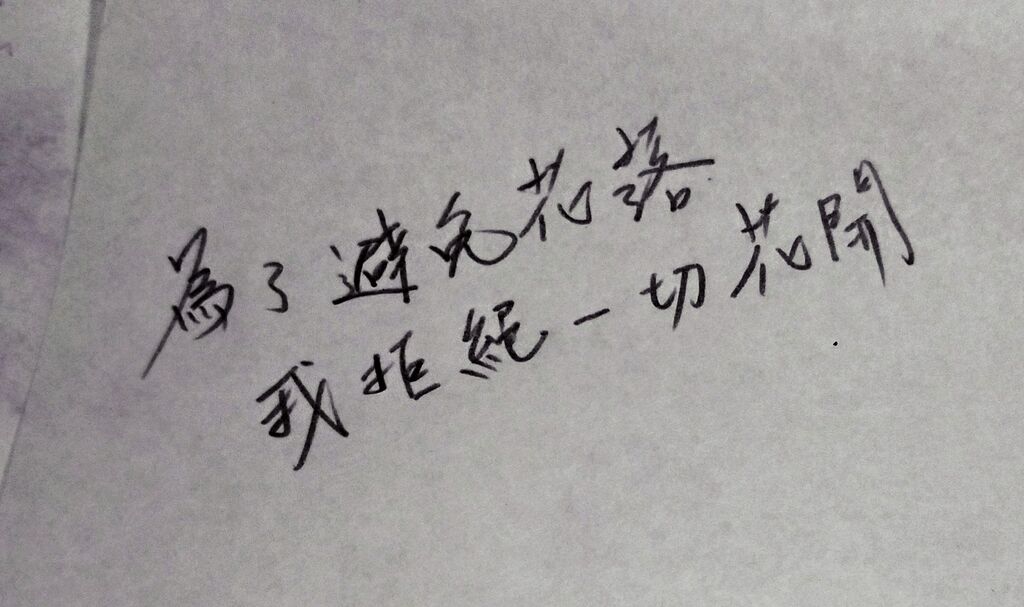 為了避免花落
我拒絕一切花開